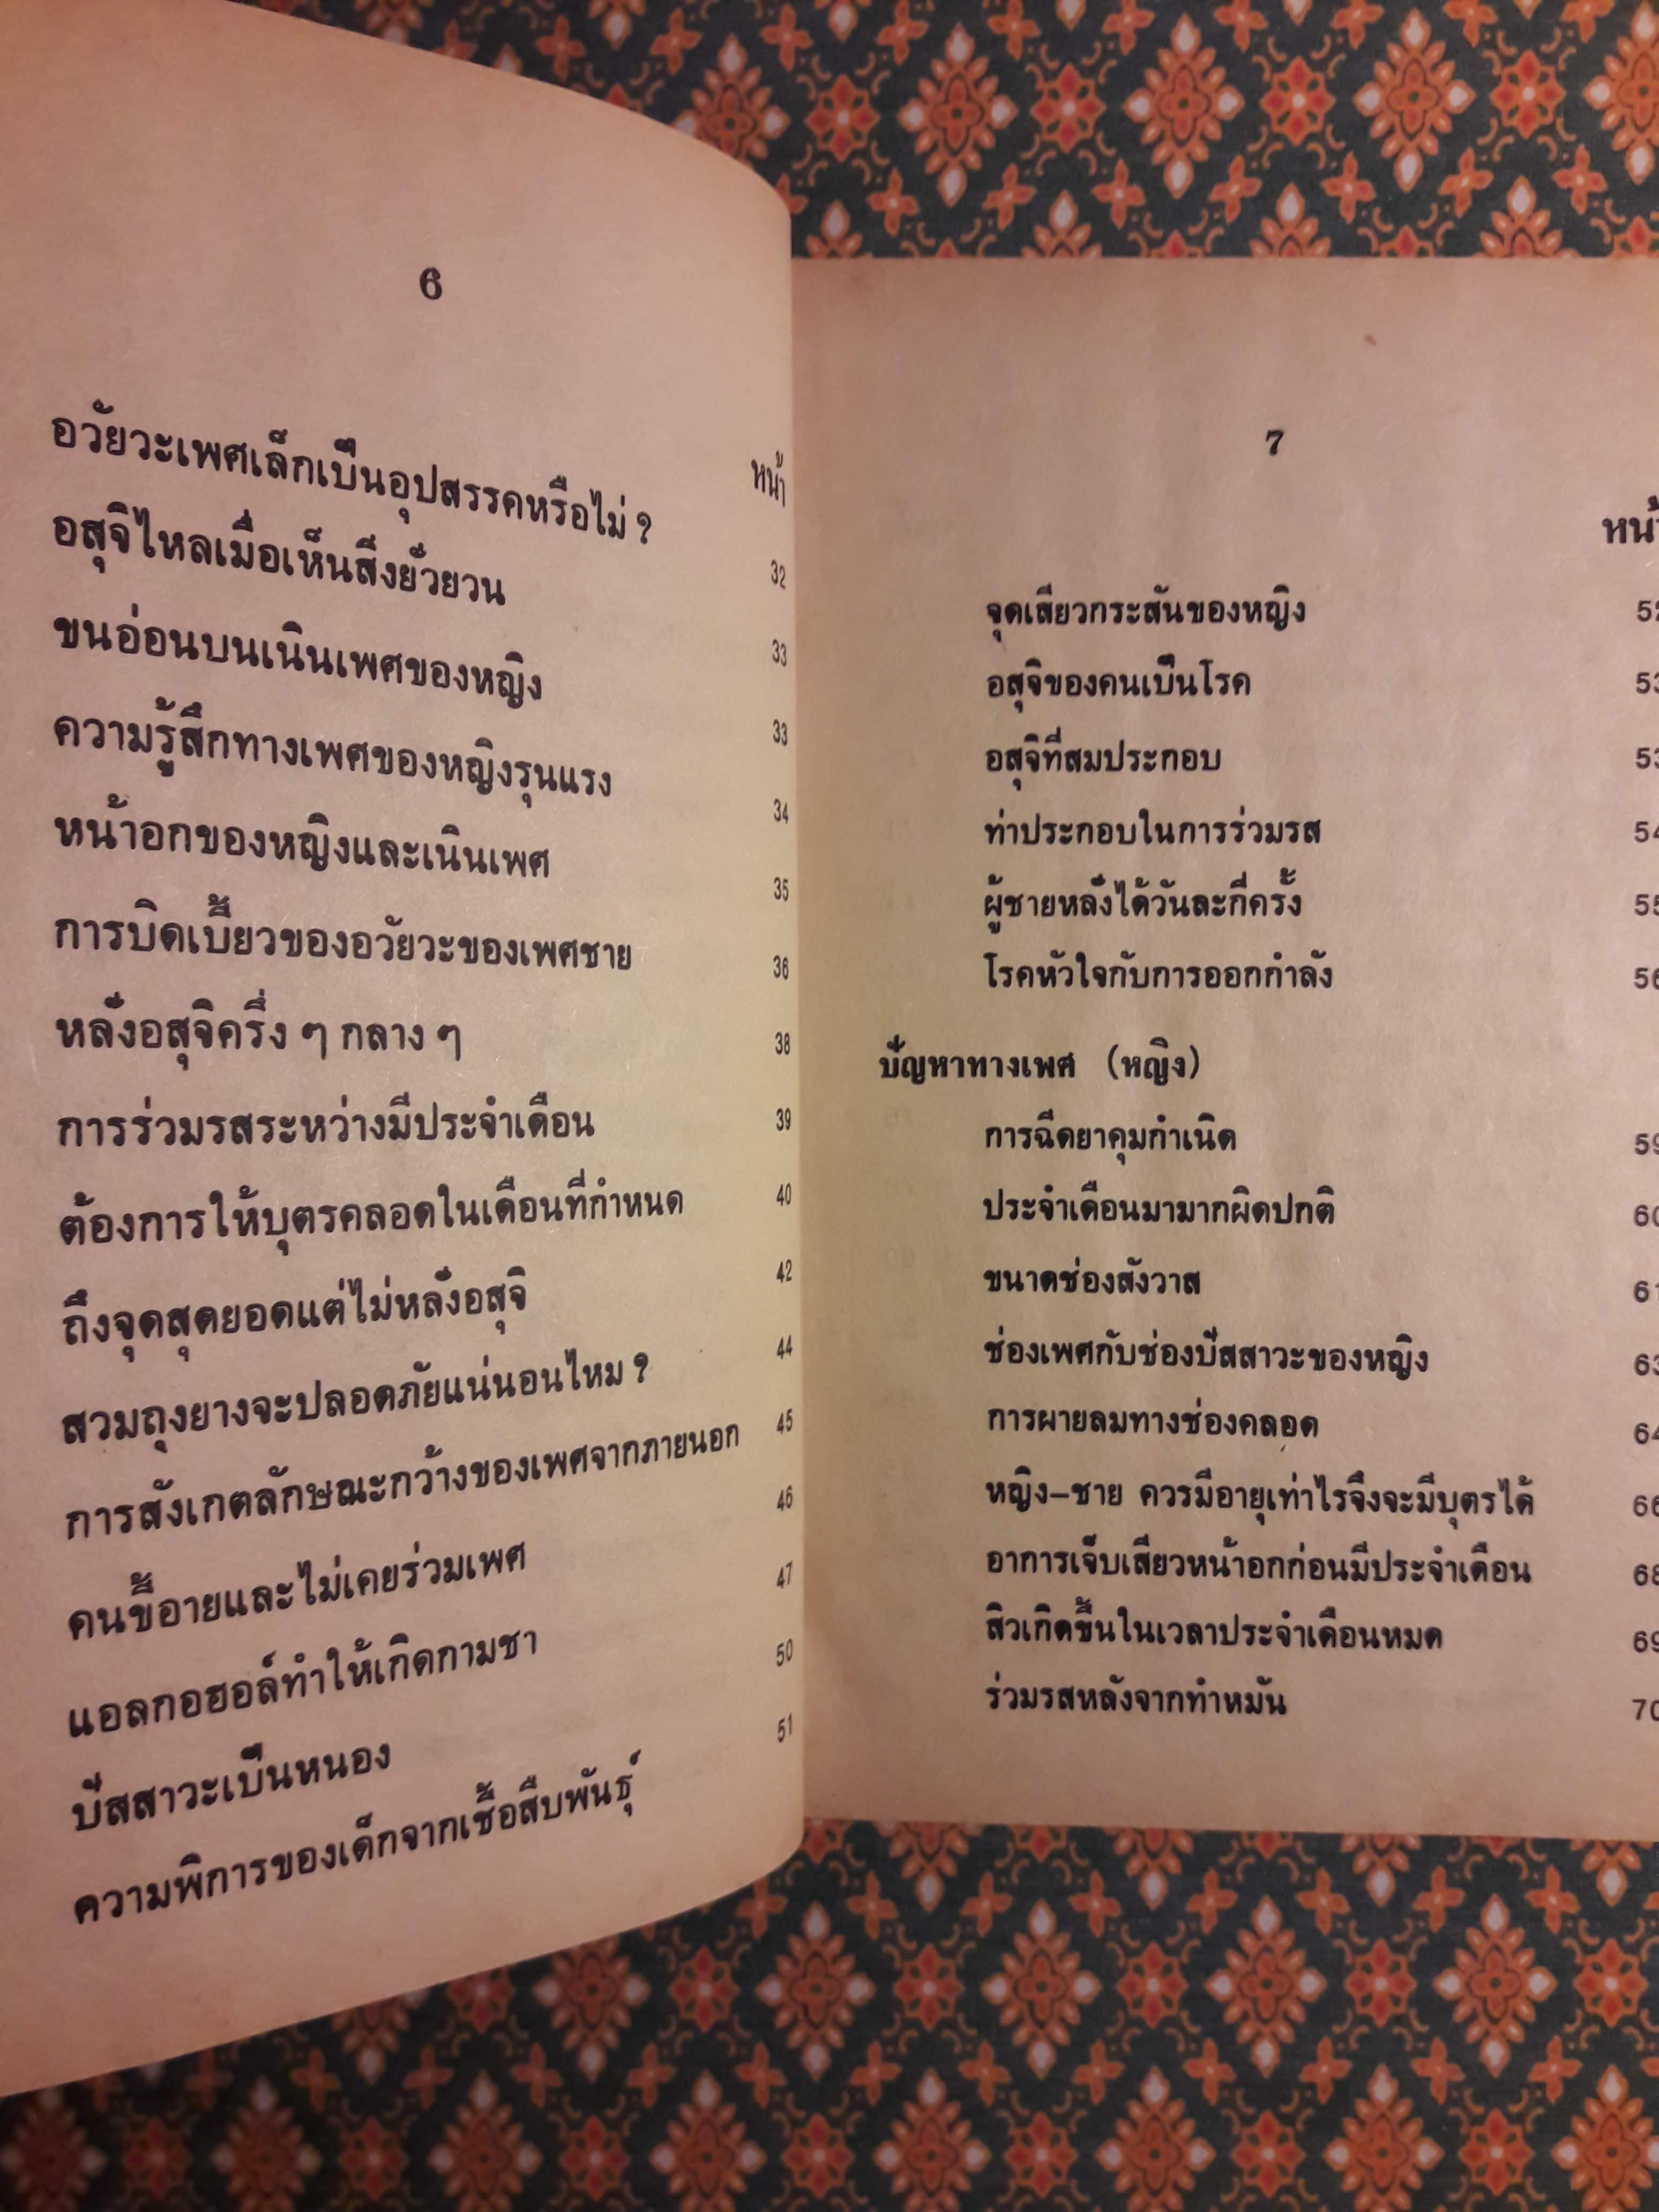 6
หน้า
อวัยวะเพศเล็กเป็นอุปสรรคหรือไม่ ? 32
อสุจิไหลเมื่อเห็นสิ่งยั่วยวน 33
ขนอ่อนบนเนินเพศของหญิง 33
ความรู้สึกทางเพศของหญิงรุนแรง 34
หน้าอกของหญิงและเนินเพศ 35
การบิดเบี้ยวของอวัยวะของเพศชาย 36
หลั่งอสุจิครึ่ง ๆ กลาง ๆ 38
การร่วมรสระหว่างมีประจำเดือน 39
ต้องการให้บุตรคลอดในเดือนที่กำหนด 40
ถึงจุดสุดยอดแต่ไม่หลั่งอสุจิ 42
สวมถุงยางจะปลอดภัยแน่นอนไหม ? 44
การสังเกตลักษณะกว้างของเพศจากภายนอก 45
คนขี้อายและไม่เคยร่วมเพศ 46
แอลกอฮอล์ทำให้เกิดกามชา 47
ปัสสาวะเป็นหนอง 50
ความพิการของเด็กจากเชื้อสืบพันธุ์ 51
7
หน้า
จุดเสียวกระสันของหญิง 52
อสุจิของคนเป็นโรค 53
อสุจิที่สมประกอบ 53
ท่าประกอบในการร่วมรส 54
ผู้ชายหลั่งได้วันละกี่ครั้ง 55
โรคหัวใจกับการออกกำลัง 56
ปัญหาทางเพศ (หญิง)
การฉีดยาคุมกำเนิด 59
ประจำเดือนมามากผิดปกติ 60
ขนาดช่องสังวาส 61
ช่องเพศกับช่องปัสสาวะของหญิง 63
การผายลมทางช่องคลอด 64
หญิง-ชาย ควรมีอายุเท่าไรจึงจะมีบุตรได้ 66
อาการเจ็บเสียวหน้าอกก่อนมีประจำเดือน 68
สิวเกิดขึ้นในเวลาประจำเดือนหมด 69
ร่วมรสหลังจากทำหมัน 70